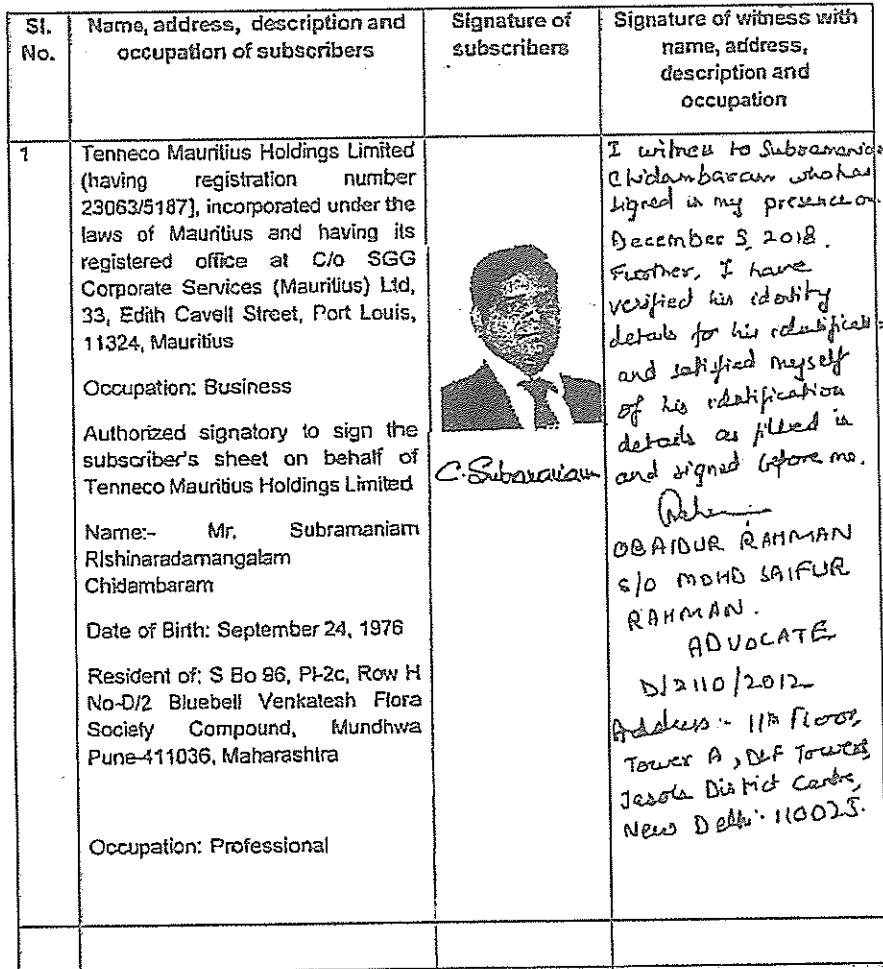 Sl. No.
Name, address, description and
occupation of subscribers
Signature of
subscribers
Signature of witness with
name, address,
description and
occupation
1
Tenneco Mauritius Holdings Limited
(having registration number
23063/5187], incorporated under the
laws of Mauritius and having its
registered office at C/o SGG
Corporate Services (Mauritius) Ltd,
33, Edith Cavell Street, Port Louis,
11324, Mauritius
Occupation: Business
Authorized signatory to sign the
subscriber's sheet on behalf of
Tenneco Mauritius Holdings Limited
Name:- Mr. Subramaniam
Rishinaradamangalam
Chidambaram
Date of Birth: September 24, 1976
Resident of: S Bo 96, Pl-2c, Row H
No-D/2 Bluebell Venkatesh Flora
Society Compound, Mundhwa
Pune-411036, Maharashtra
Occupation: Professional
C. Subramaniam
I witness to Subramania
Chidambaram who has
signed in my presence on
December 5, 2018.
Further, I have
verified his identity
details for his identificati
and satisfied myself
of his identification
details as filled in
and signed before me.
OBAIDUR RAHMAN
S/O MOHD SAIFUR
RAHMAN.
ADVOCATE
D/2110/2012
Address:- 11th Floor,
Tower A, DLF Towers,
Jasola District Centre,
New Delhi-110025.